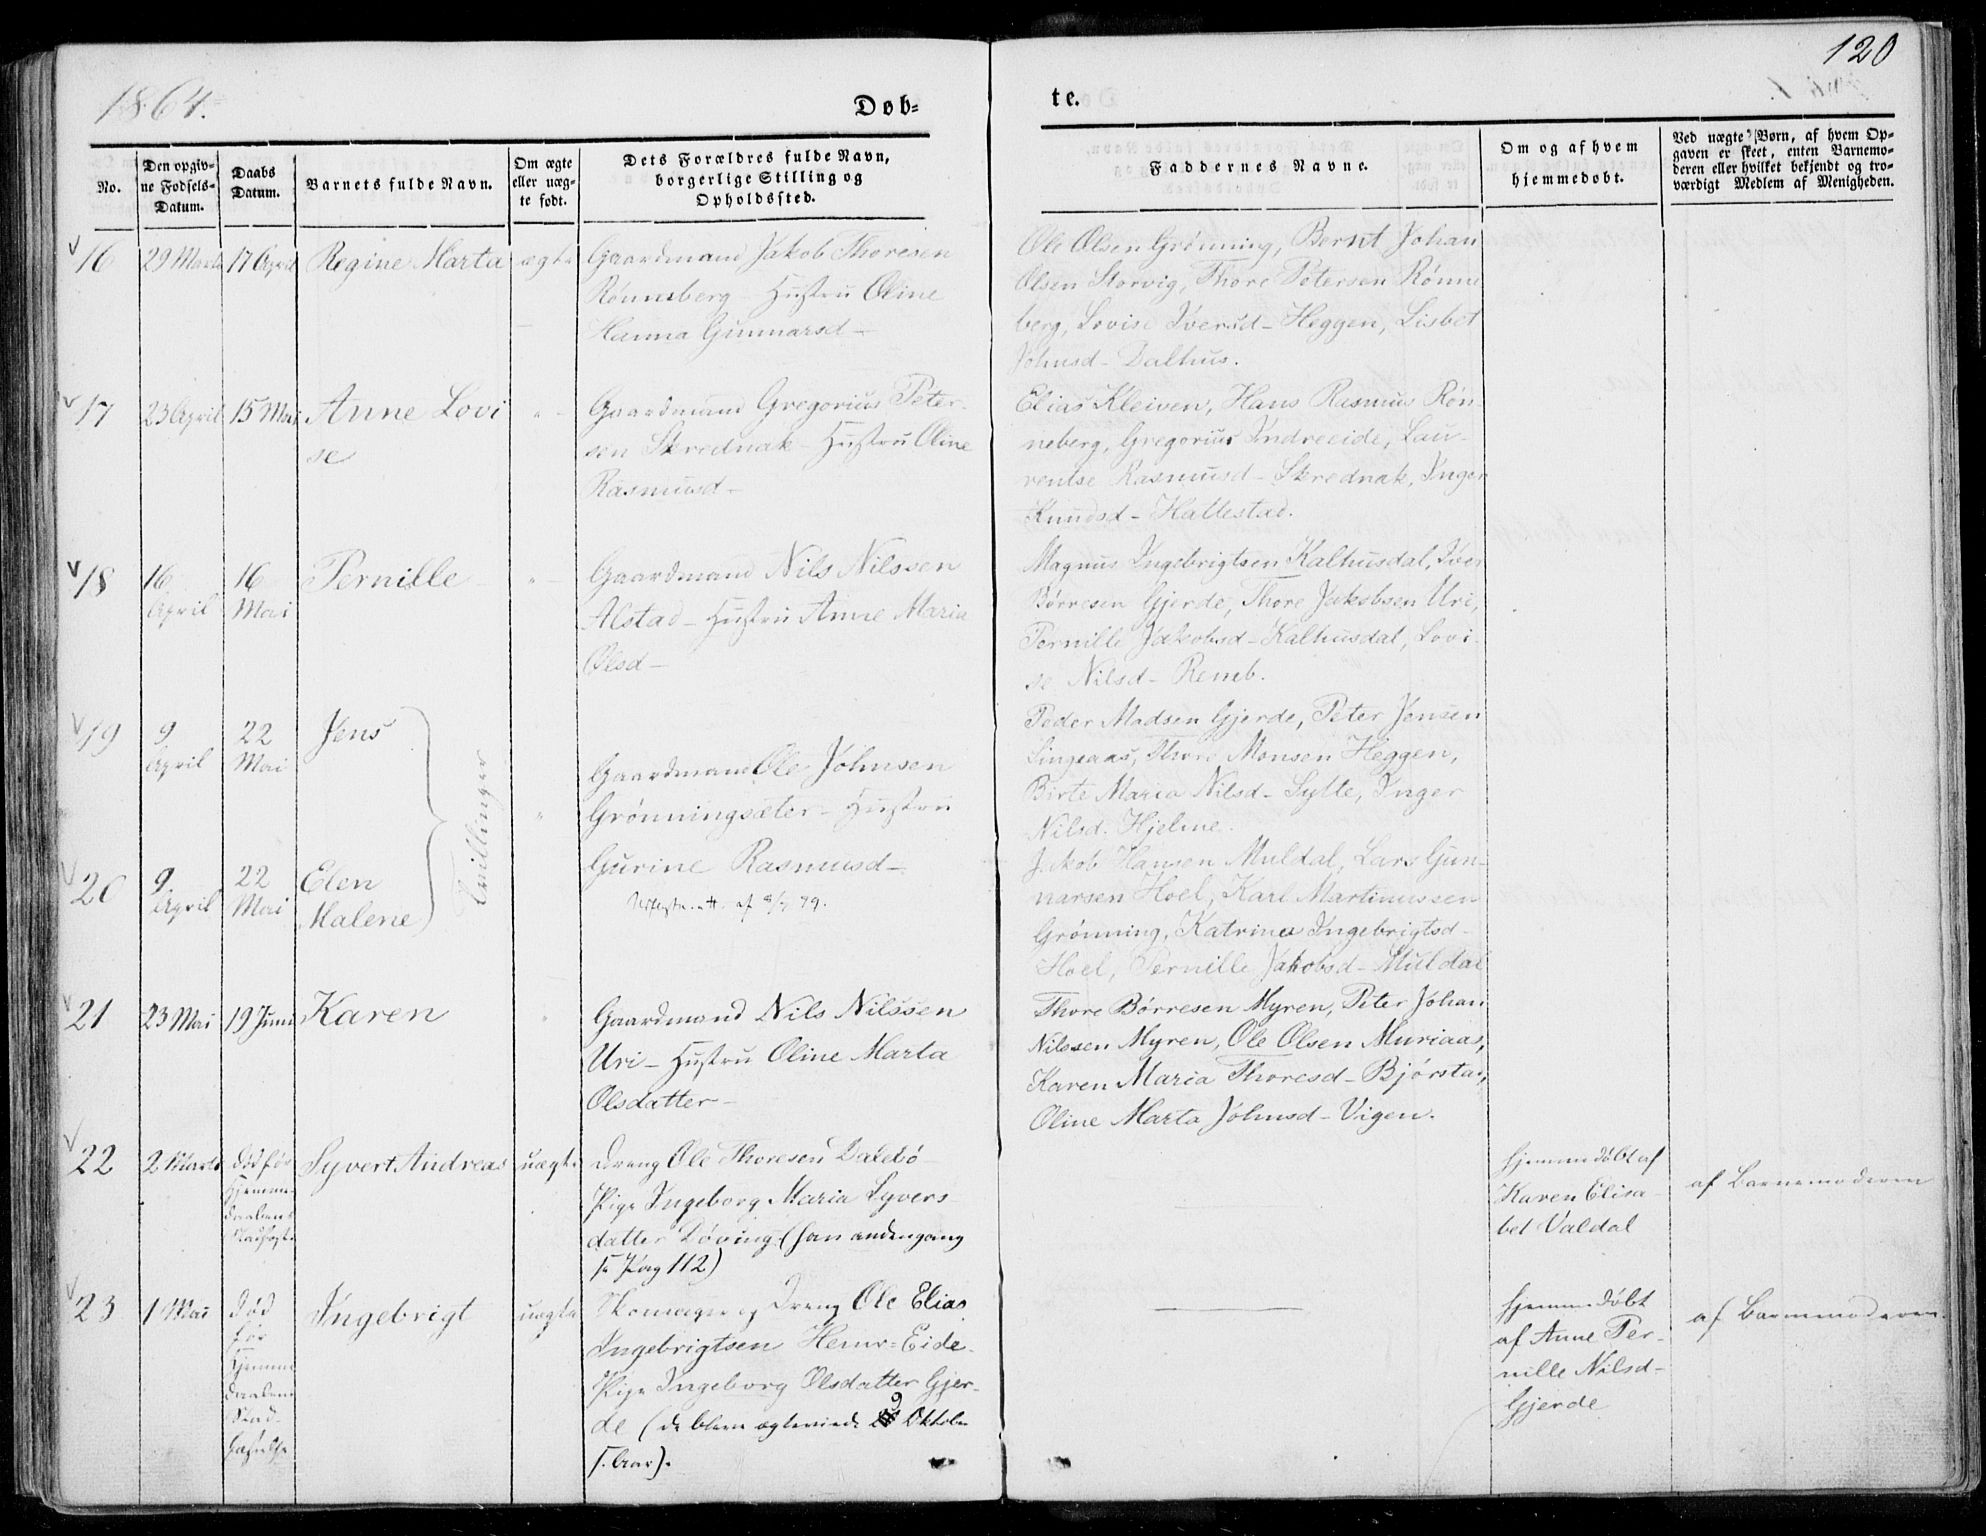 120
1864.
Døb=
te.
No.
Den opgiv-
ne Fødsels-
Datum.
Daabs
Datum.
Barnets fulde Navn.
Om ægte
eller uæg-
te født.
Dets Forældres fulde Navn,
borgerlige Stilling og
Opholdssted.
Faddernes Navne.
Om og af hvem
hjemmedøbt.
Ved uægte Børn, af hvem Op-
gaven er skeet, enten Barnemo-
deren eller hvilket bekjendt og tro-
værdigt Medlem af Menigheden.
16
29 Marts
17 April
Regine Marta
ægte
Gaardmand Jakob Thoresen
Rønneberg - Hustru Oline
Hanna Gunnarsd -
Ole Olsen Grønning, Bernt Johan
Olsen Storvig, Thore Petersen Rønne
berg, Lovise Iversd - Heggen, Lisbet
Johnsd - Dalhus.
17
23 April
15 Mai
Anne Lovi
se
"
Gaardmand Gregorius Peter-
sen Skrednak - Hustru Oline
Rasmusd -
Elias Kleiven, Hans Rasmus Røn-
neberg, Gregorius Indreeide, Lau-
rentse Rasmusd - Skrednak, Inger
Knudsd - Hallestad.
18
16
April
16
Mai
Pernille
"
Gaardmand Nils Nilssen
Alstad - Hustru Anne Maria
Olsd -
Magnus Ingebrigtsen Kalhusdal, Iver
Børresen Gjerde, Thore Jakobsen Uri,
Pernille Jakobsd - Kalhusdal, Lovi-
se Nilsd - Remb.
19
9
April
22
Mai
Jens
Tvillinger
"
Gaardmand Ole Johnsen
Grønningsæter - Hustru
Gurine Rasmusd -
af 9/7 79.
Peder Madsen Gjerde, Peter Jensen
Lingeaas, Thore Monsen Heggen,
Birte Maria Nilsd - Sylte, Inger
Nilsd. Hjelme.
20
9
April
22
Mai
Elen
Malene
Jakob Hansen Muldal, Lars Gun-
narsen Hoel, Karl Martinussen
Grønning, Katrine Ingebrigtsd -
Hoel, Pernille Jakobsd - Muldal
21
23 Mai
19 Juni
Karen
"
Gaardmand Nils Nilssen
Uri - Hustru Oline Marta
Olsdatter -
Thore Børresen Myren, Peter Johan
Nilssen Myren, Ole Olsen Muriaas,
Karen Maria Thoresd - Bjørstad,
Oline Marta Johnsd - Vigen.
22
2 Marts
død før
Hjemme-
daabens
Stadfæst.
Syvert Andreas
uægte
Dreng Ole Thoresen Dalebø
Pige Ingeborg Maria Syvers-
datter Døving (han andengang
s. Pag 112)
hjemmedøbt af
Karen Elisa-
bet Valdal
af Barnemoderen
23
1 Mai
død
før
Hjemme
daabens
Stad-
fæstelse
Ingebrigt
uægte
Skomager og Dreng Ole Elias
Ingebrigtsen Hemr=Eide-
Pige Ingeborg Olsdatter Gjer-
de (de bleve ægteviede 9 Oktober
s. Aar).
hjemmedøbt
af Anne Per-
nille Nilsd -
Gjerde
af Barnemoderen.